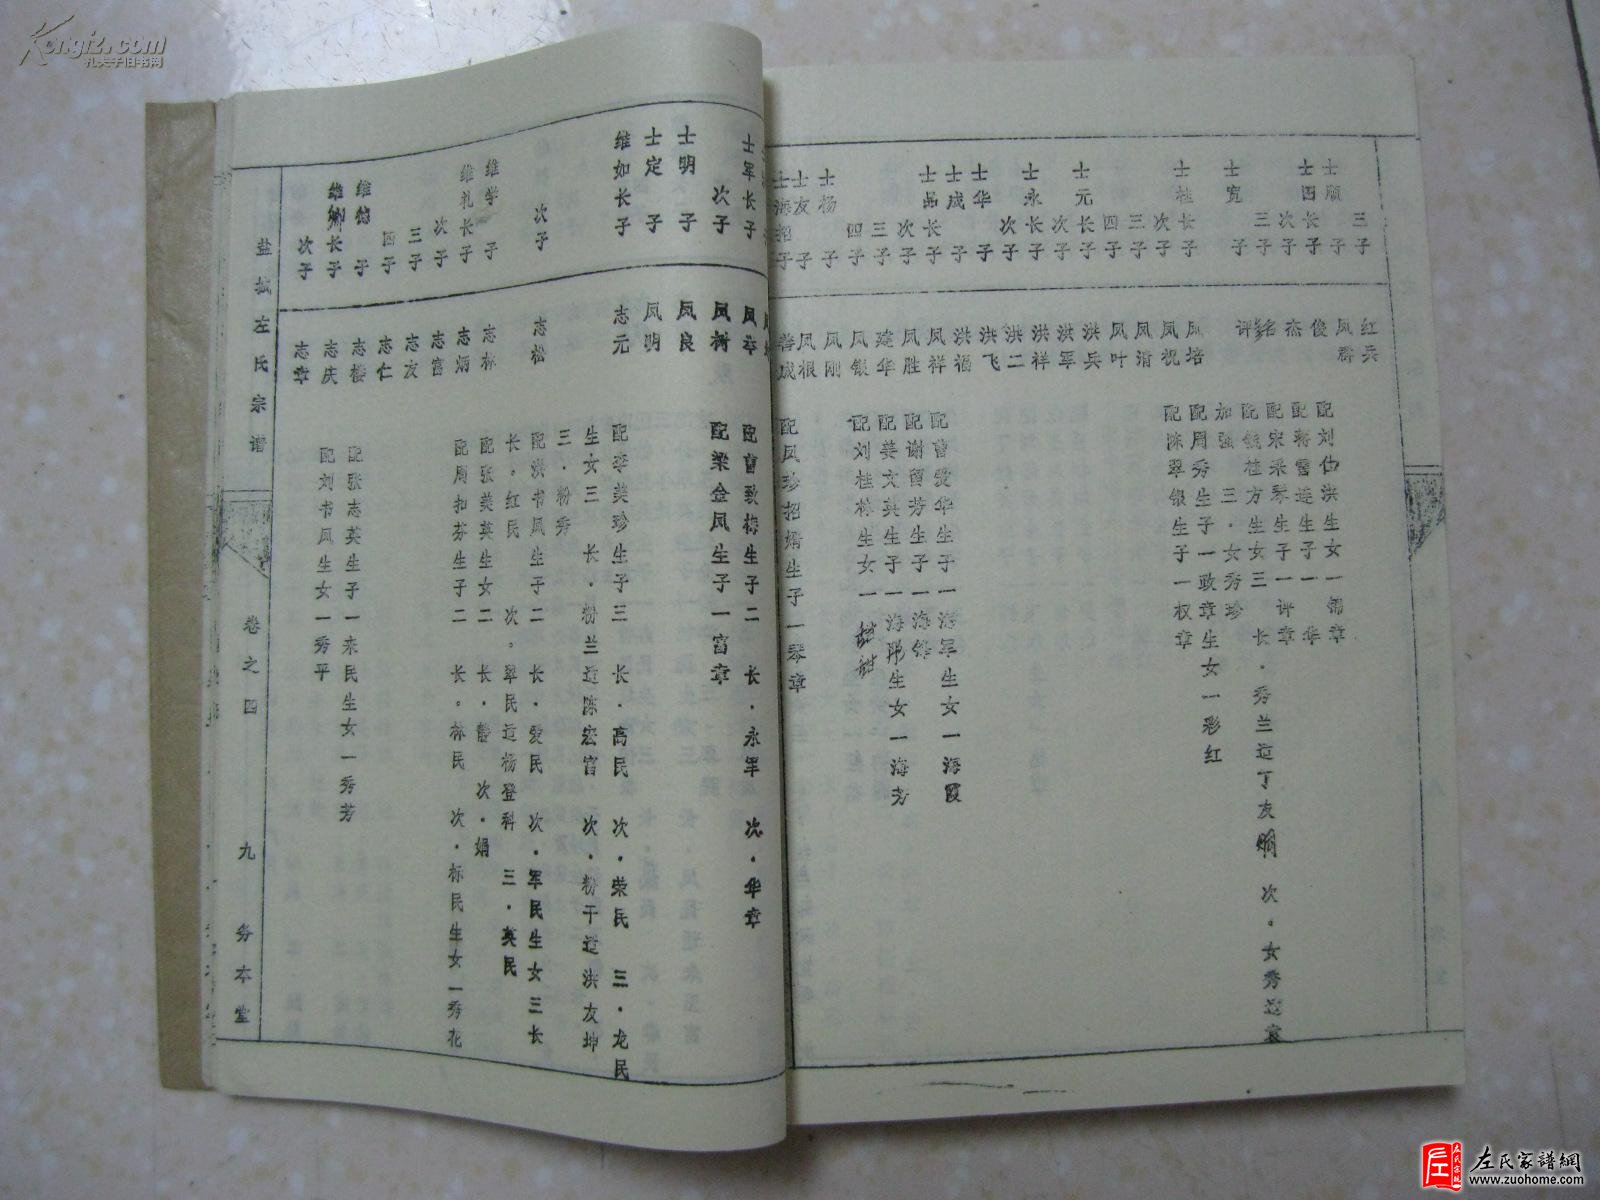 红兵
三子
凤群
士顺 子
俊
士国长子
杰
次子
三子
士宽 子
凤培
士桂长子
凤祝
次子
凤清
三子
凤叶
四子
洪兵
士元长子
洪军
次子
洪祥
士永长子
洪二
次子
洪飞
士华 子
洪福
士成 子
凤祥
士品长子
凤胜
次子
建华
三子
凤银
四子
凤刚
士杨 子
凤根
士友 子
配刘仙洪生女一锦章
配蒋雪连生子一华
配宋采琴生子一评章
配钱桂方生女三 长·秀兰适丁友明 次·女秀适袁
加强 三·女秀珍
配周秀生子一政章生女一彩红
配陈翠银生子一权章
配曹爱华生子一海军生女一海霞
配谢留芳生子一海锋
配姜文英生子一海翔生女一海芳
配刘桂林生女一甜甜
配凤珍招婿生子一琴章
士军长子
凤举
配曹致梅生子二 长·永军 次·华章
次子
凤树
配梁金凤生子一富章
士明 子
凤良
士定 子
凤明
维如长子
志元
配李美珍生子三 长·高民 次·荣民 三·龙民
生女三 长·粉兰适陈宏官 次·粉干适洪友坤
三·粉秀
次子
志松
配洪书凤生子二 长·爱民 次·军民生女三长
长。红民 次。翠民适杨登科 三·英民
维学 子
志林
配张美英生女二 长·静 次·娟
维礼长子
志炳
配周扣芬生子二 长。林民 次·标民生女一秀花
次子
志富
三子
志友
四子
志仁
维德 子
志楼
配张志英生子一来民生女一秀芳
维卿长子
志庆
配刘书凤生女一秀平
次子
志章
盐城左氏宗谱 卷之四 九 务本堂
Kongfz.com
孔夫子旧书网
左氏家譜網
www.zuohome.com